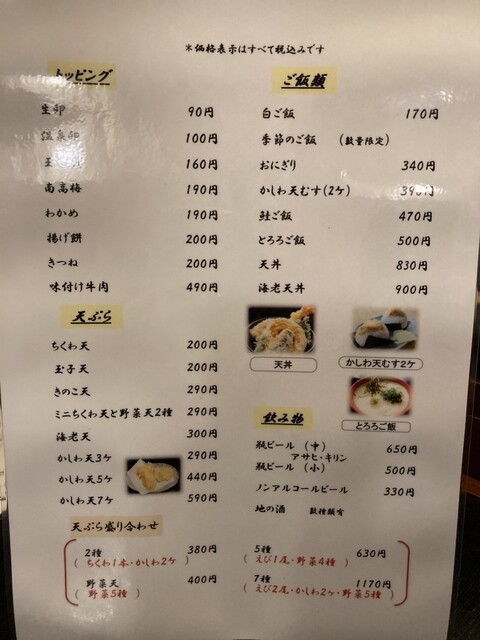 ＊価格表示はすべて税込みです
トッピング
生卵 90円
温泉卵 100円
160円
南高梅 190円
わかめ 190円
揚げ餅 200円
きつね 200円
味付け牛肉 490円
天ぷら
ちくわ天 200円
玉子天 200円
きのこ天 290円
ミニちくわ天と野菜天2種 290円
海老天 300円
かしわ天3ケ 290円
かしわ天5ケ 440円
かしわ天7ケ 590円
ご飯類
白ご飯 170円
季節のご飯 （数量限定）
おにぎり 340円
かしわ天むす(2ケ) 390円
鮭ご飯 470円
とろろご飯 500円
天丼 830円
海老天丼 900円
天丼
かしわ天むす2ケ
とろろご飯
飲み物
瓶ビール（中） 650円
アサヒ・キリン
瓶ビール（小） 500円
ノンアルコールビール 330円
地の酒 数種類有
天ぷら盛り合わせ
2種 380円
（ちくわ1本・かしわ2ケ）
野菜天 400円
（野菜5種）
5種 630円
（えび1尾・野菜4種）
7種 1170円
（えび2尾・かしわ2ケ・野菜5種）